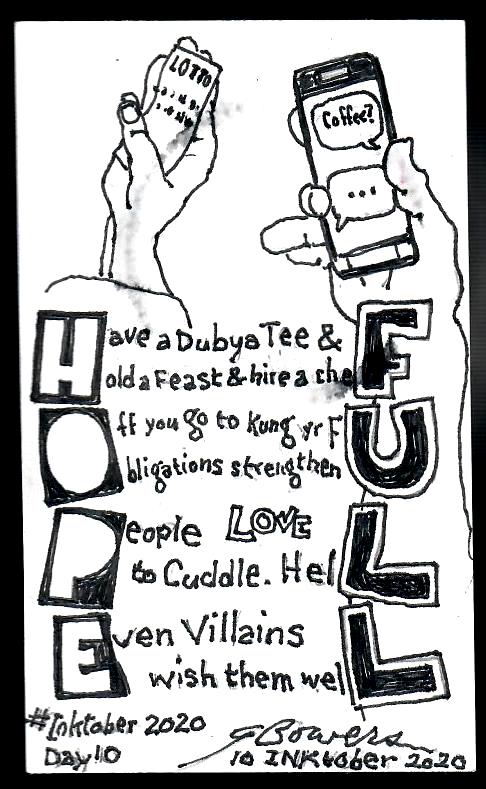 LOTTO
Coffee?
...
Have a Dubya Tee &
old a Feast & hire a cheF
Off you go to Kung yr FU
bligations strengthen
People LOVE
to Cuddle. HelL
Even Villains
wish them welL
#Inktober 2020
Day 10
G Bowers
10 INKtober 2020